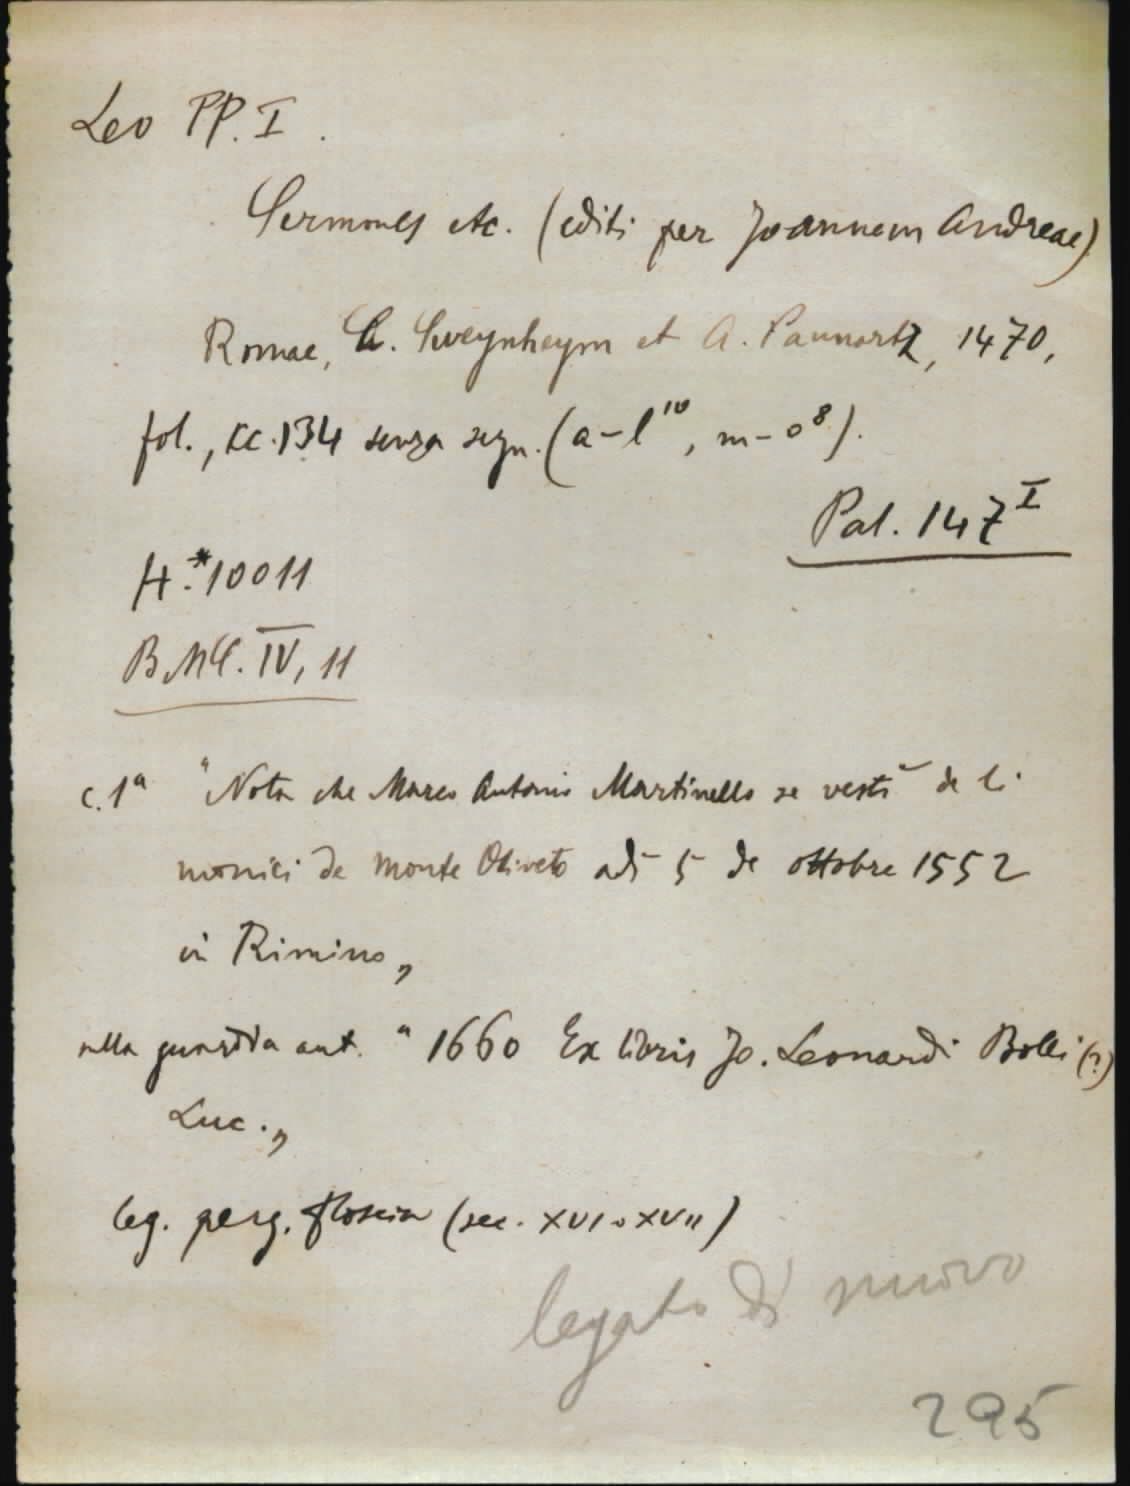 Leo PP. I.
Sermones etc. (editi per Joannem Andreae)
Romae, C. Sweynheym et A. Pannartz, 1470,
fol., cc. 134 senza segn. (a-l¹⁰, m-o⁸).
Pal. 147ᴵ
H.*10011
BMC. IV, 11
c. 1ᵃ "Nota che Marco Antonio Martinello se vestì de li
monici de Monte Oliveto adì 5 de ottobre 1552
in Rimino„
nella guardia ant. "1660 Ex libris Jo. Leonardi Bolli (?)
Luc.„
leg. perg. floscia (sec. XVI o XVII)
legato di nuovo
295